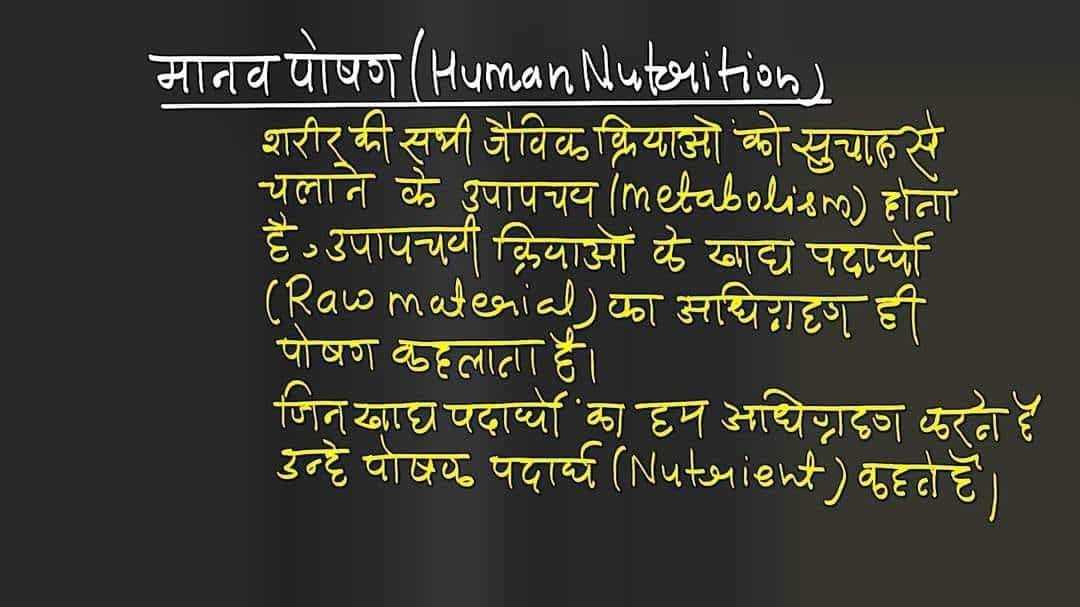 मानव पोषण (Human Nutrition)
शरीर की सभी जैविक क्रियाओं को सुचारू से
चलाने के उपापचय (metabolism) होता
है, उपापचयी क्रियाओं के खाद्य पदार्थो
(Raw material) का अधिग्रहण ही
पोषण कहलाता है।
जिन खाद्य पदार्थो का हम अधिग्रहण करते है
उन्हे पोषक पदार्थ (Nutrient) कहते हैं।